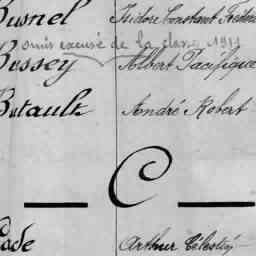 Busnel Isidore Constant Frédéric
omis excusé de la classe 1911
Bussey Albert Pacifique
Butault André Robert
C
Cade Arthur Célestin